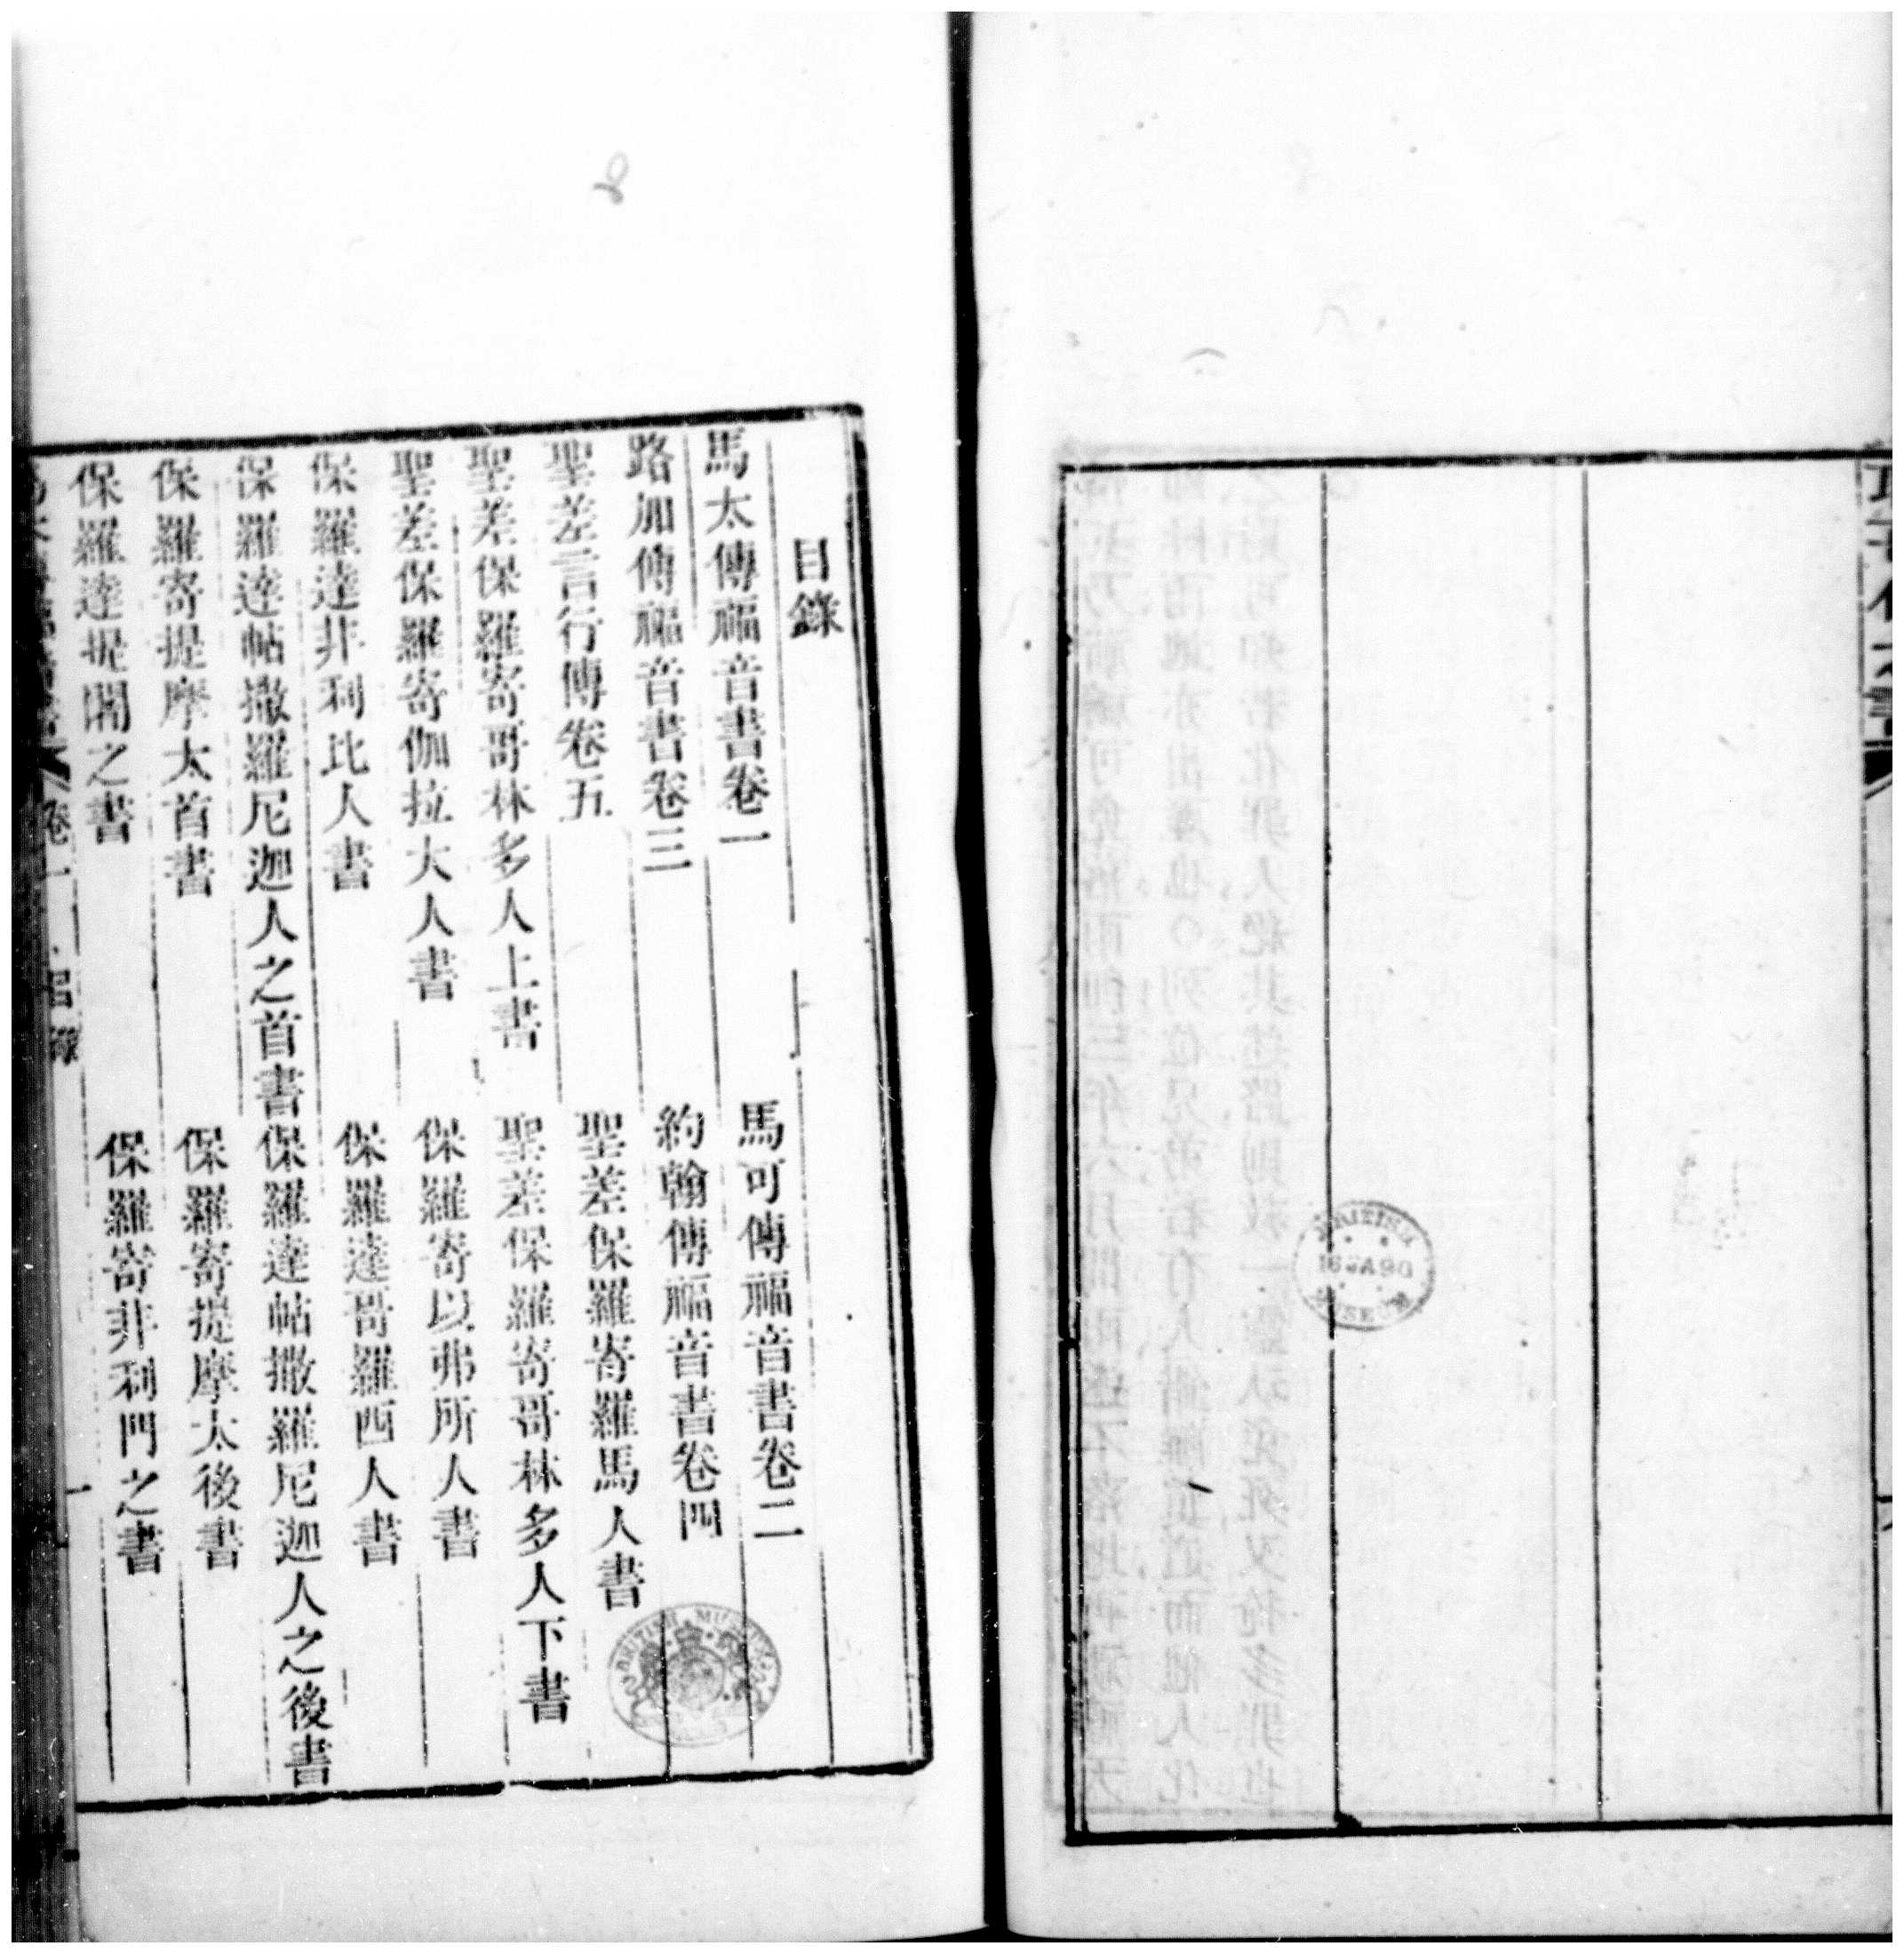 目錄
馬太傳福音書卷一
馬可傳福音書卷二
路加傳福音書卷三
約翰傳福音書卷四
聖差言行傳卷五
聖差保羅寄羅馬人書
聖差保羅寄哥林多人上書
聖差保羅寄哥林多人下書
聖差保羅寄伽拉大人書
保羅寄以弗所人書
保羅達非利比人書
保羅達哥羅西人書
保羅達帖撒羅尼迦人之首書
保羅達帖撒羅尼迦人之後書
保羅寄提摩太首書
保羅寄提摩太後書
保羅達提閣之書
保羅寄非利門之書
卷一
目錄
一
BRITISH MUSEUM
BRITISH
MUSEUM